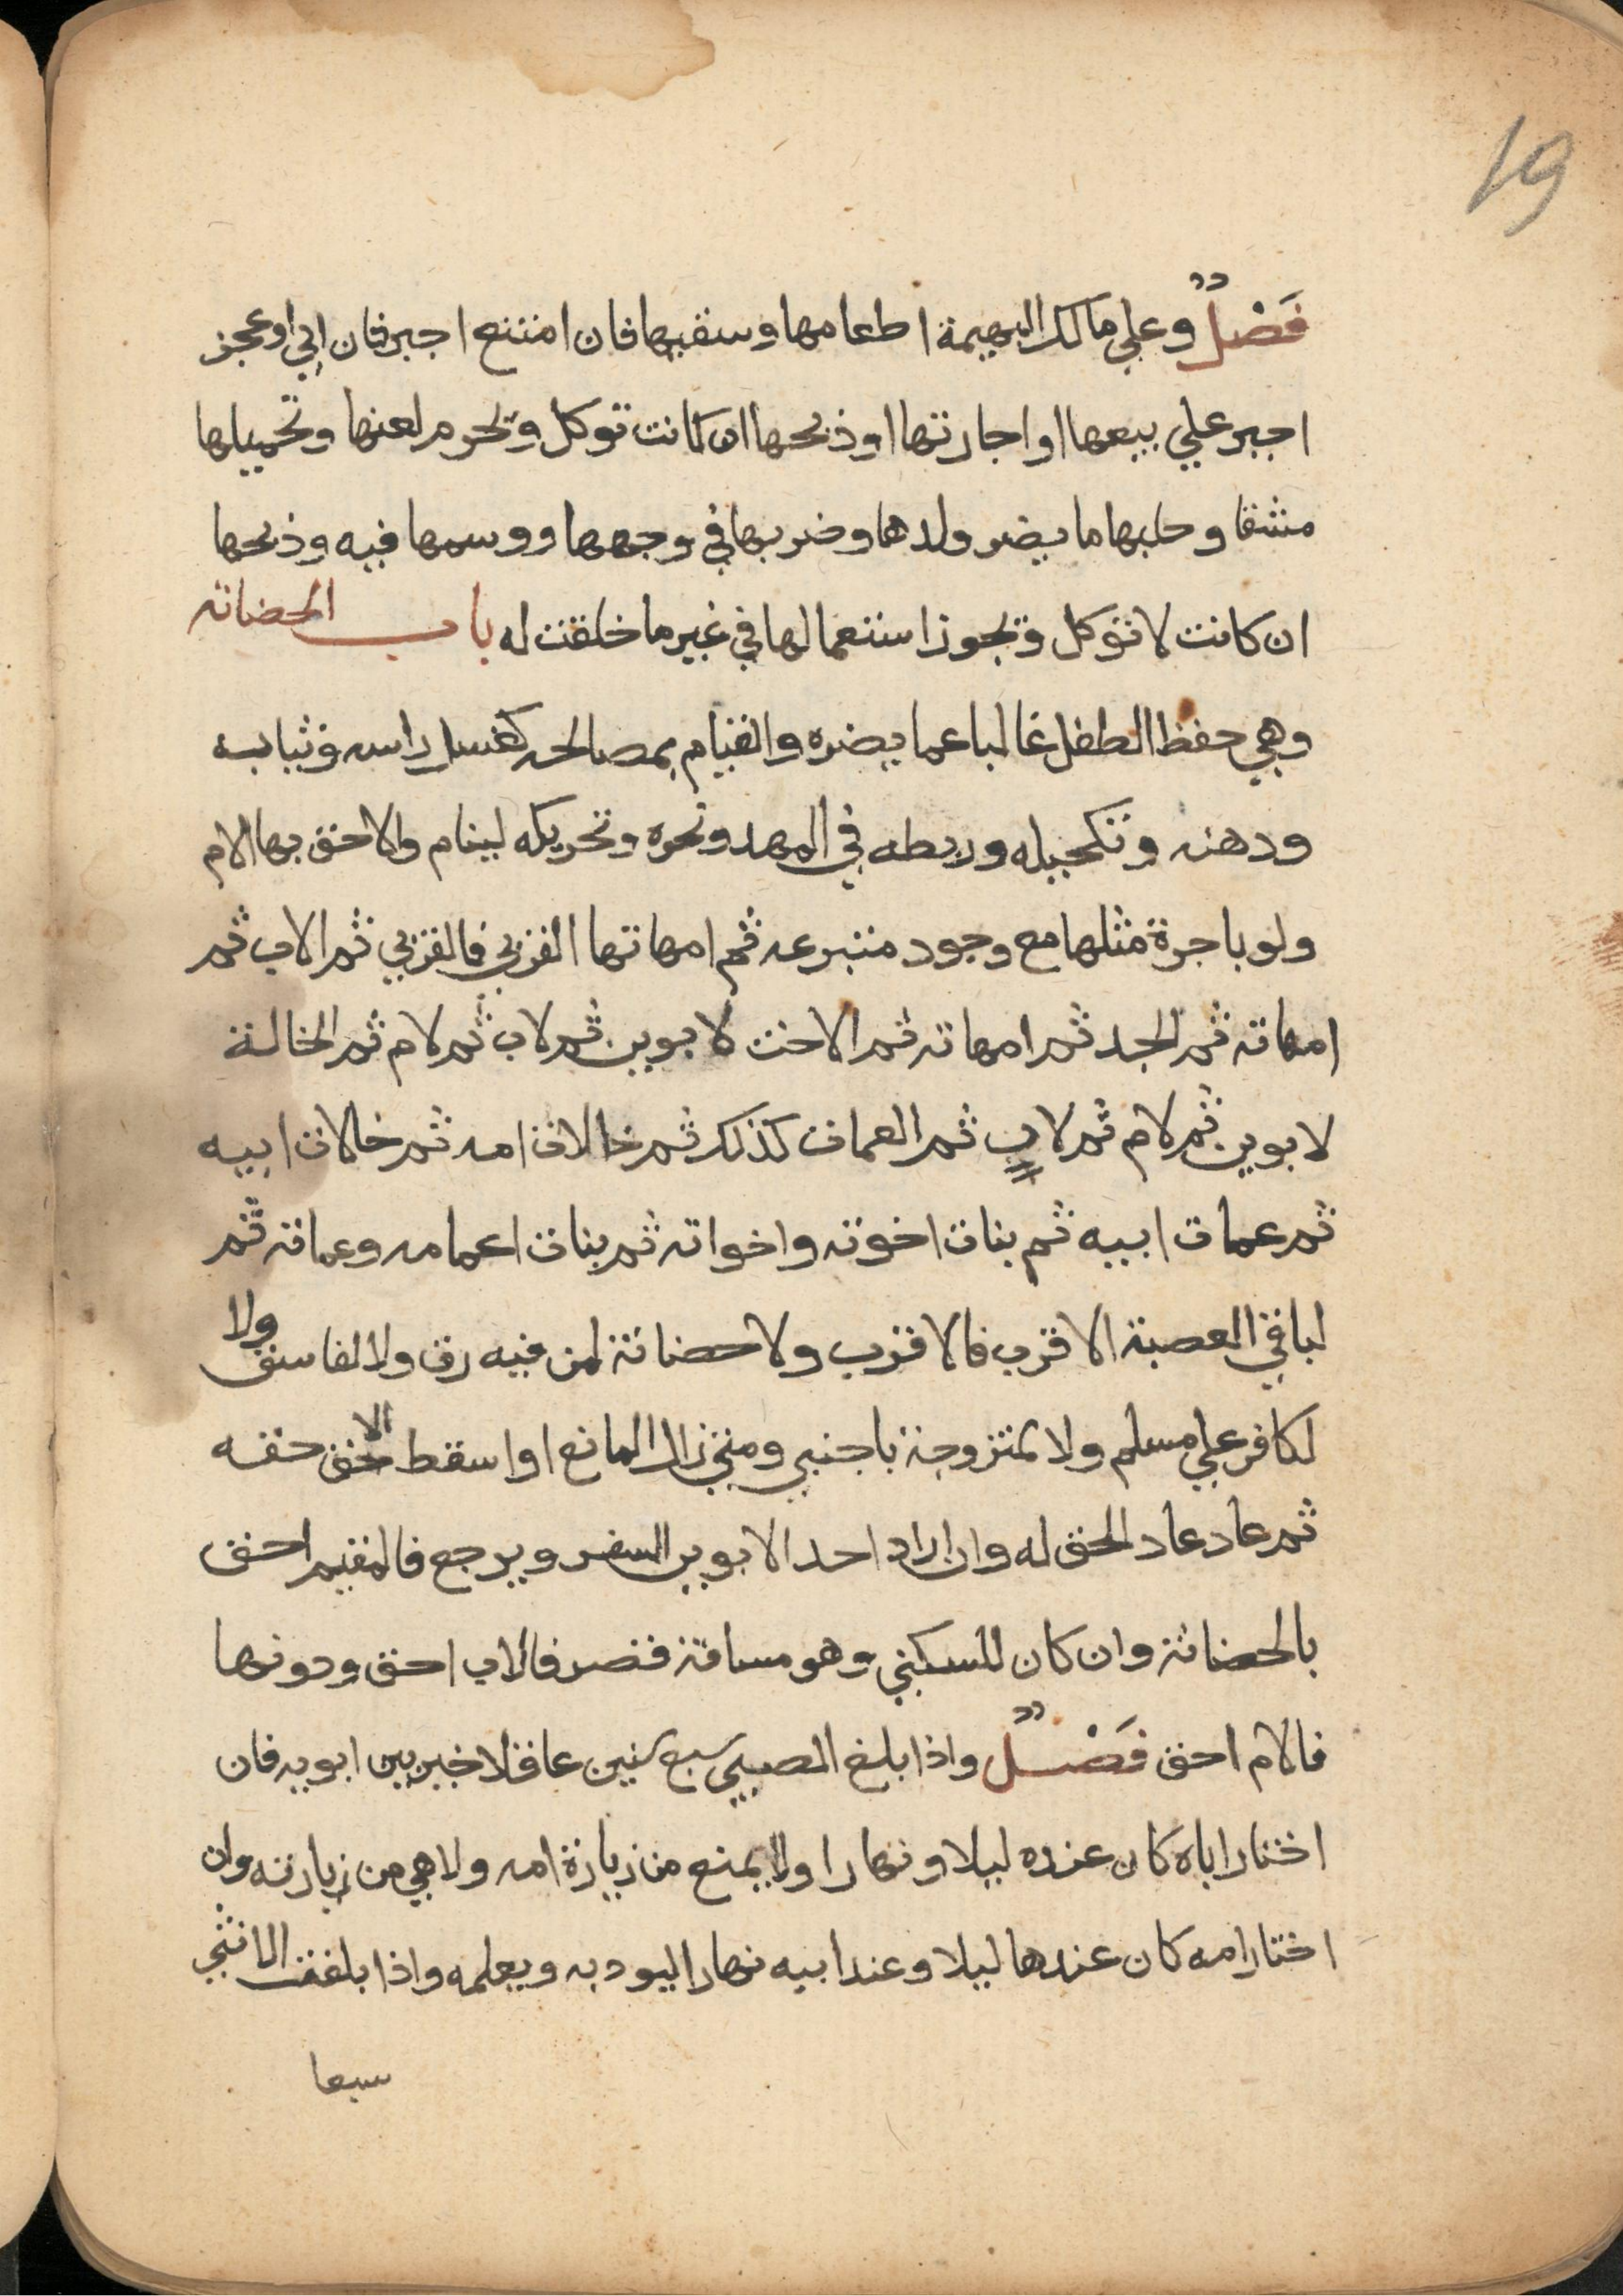 19
فَصْلٌ وعلي مالك البهيمة اطعامها وسقيها فان امتنع اجبر فان ابي او عجز
اجبر علي بيعها او اجارتها او ذبحها ان كانت توكل ويحرم لعنها وتحميلها
مشقا وحلبها ما يضر ولدها وضربها في وجهها ووسمها فيه وذبحها
ان كانت لا توكل ويجوز استعمالها في غير ما خلقت له باب الحضانة
وهي حفظ الطفل غالبا عما يضره والقيام بمصالحه كغسل راسه وثيابه
ودهنه وتكحيله وربطه في المهد ونحوه وتحريكه لينام والاحق بها الام
ولو باجرة مثلها مع وجود متبرعه ثم امهاتها القربي فالقربي ثم الاب ثم
امهاته ثم الجد ثم امهاته ثم الاخت لابوين ثم لاب ثم لام ثم الخالة
لابوين ثم لام ثم لاب ثم العمات كذلك ثم خالات امه ثم خالات ابيه
ثم عمات ابيه ثم بنات اخوته واخواته ثم بنات اعمامه وعماته ثم
لباقي العصبة الاقرب فالاقرب ولا حضانة لمن فيه رق ولا لفاسق ولا
لكافر علي مسلم ولا لمتزوجة باجنبي ومتي زال المانع او اسقط الاحق حقه
ثم عاد عاد الحق له وان اراد احد الابوين السفر ويرجع فالمقيم احق
بالحضانة وان كان للسكني وهو مسافة قصر فالاب احق ودونها
فالام احق فَصْلٌ واذا بلغ الصبي سبع سنين عاقلا خير بين ابويه فان
اختار اباه كان عنده ليلا ونهارا ولا يمنع من زيارة امه ولا هي من زيارته وان
اختار امه كان عندها ليلا وعند ابيه نهارا ليودبه ويعلمه واذا بلغت الانثي
سبعا